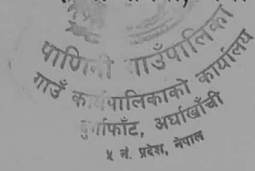 पाणिनी गाउँपालिका
गाउँ कार्यपालिकाको कार्यालय
दुर्गाफाँट, अर्घाखाँची
५ नं. प्रदेश, नेपाल